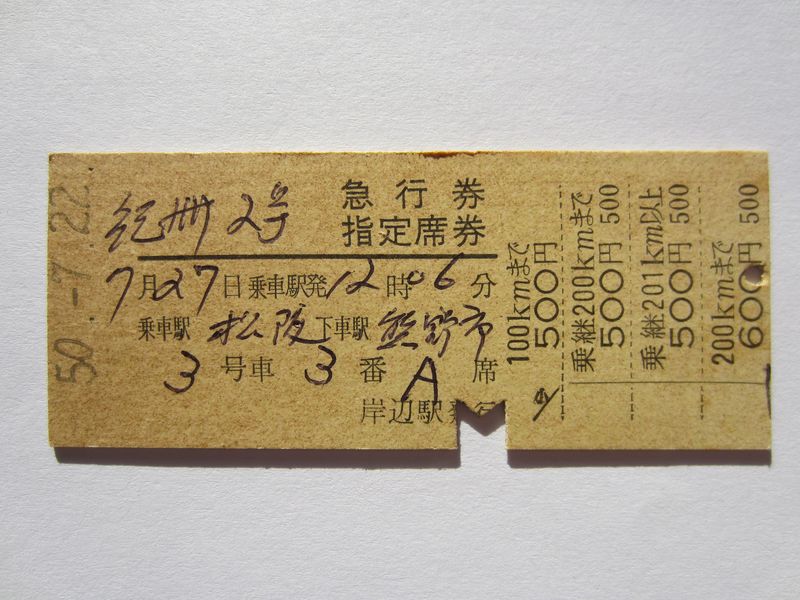 50.-7.22.
紀州 2号
急行券
指定席券
7月27日乗車駅発12時06分
乗車駅 松阪 下車駅 熊野市
3号車 3番 A 席
岸辺駅発行
100kmまで
500円
乗継200kmまで
500円 500
乗継201km以上
500円 500
200kmまで
600円 500